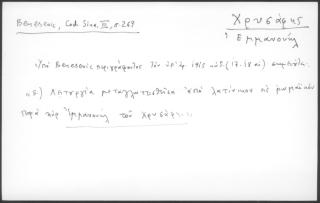 Benesevic, Cod. Sina. III, σ. 269
Χρυσάφης
Ἐμμανουήλ
Ὑπὸ Benesevic περιγράφοντος τὸν ὑπ' ἀρ. 1915 κώδ. (17-18 αἰ) σημειοῦται
Λειτουργία μεταγλωττισθεῖσα ἀπὸ λατινικὸν εἰς ρωμαίικον
παρὰ κὺρ Ἐμμανουὴλ τοῦ Χρυσάφη...